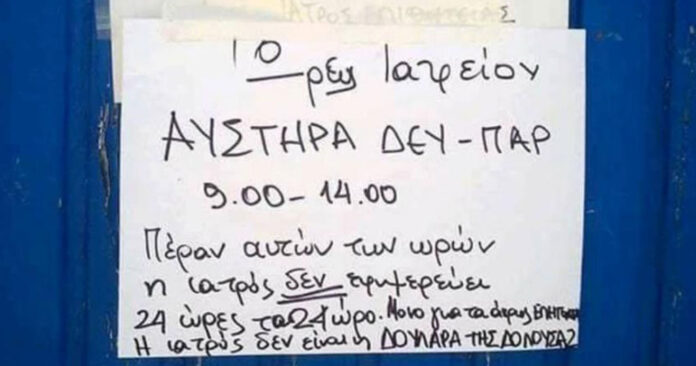 ΙΑΤΡΟΣ ΕΠΙΘ
Ὡρες Ιατρείου
ΑΥΣΤΗΡΑ ΔΕΥ-ΠΑΡ
9.00-14.00
Πέραν αυτών των ωρών
η ιατρός δεν εφημερεύει
24 ώρες το 24ωρο. Μονο για τα άκρως ΕΠΕΙΓ
Η ιατρός δεν είναι η ΔΟΥΛΑΡΑ ΤΗΣ ΔΟΝΟΥΣΑΣ